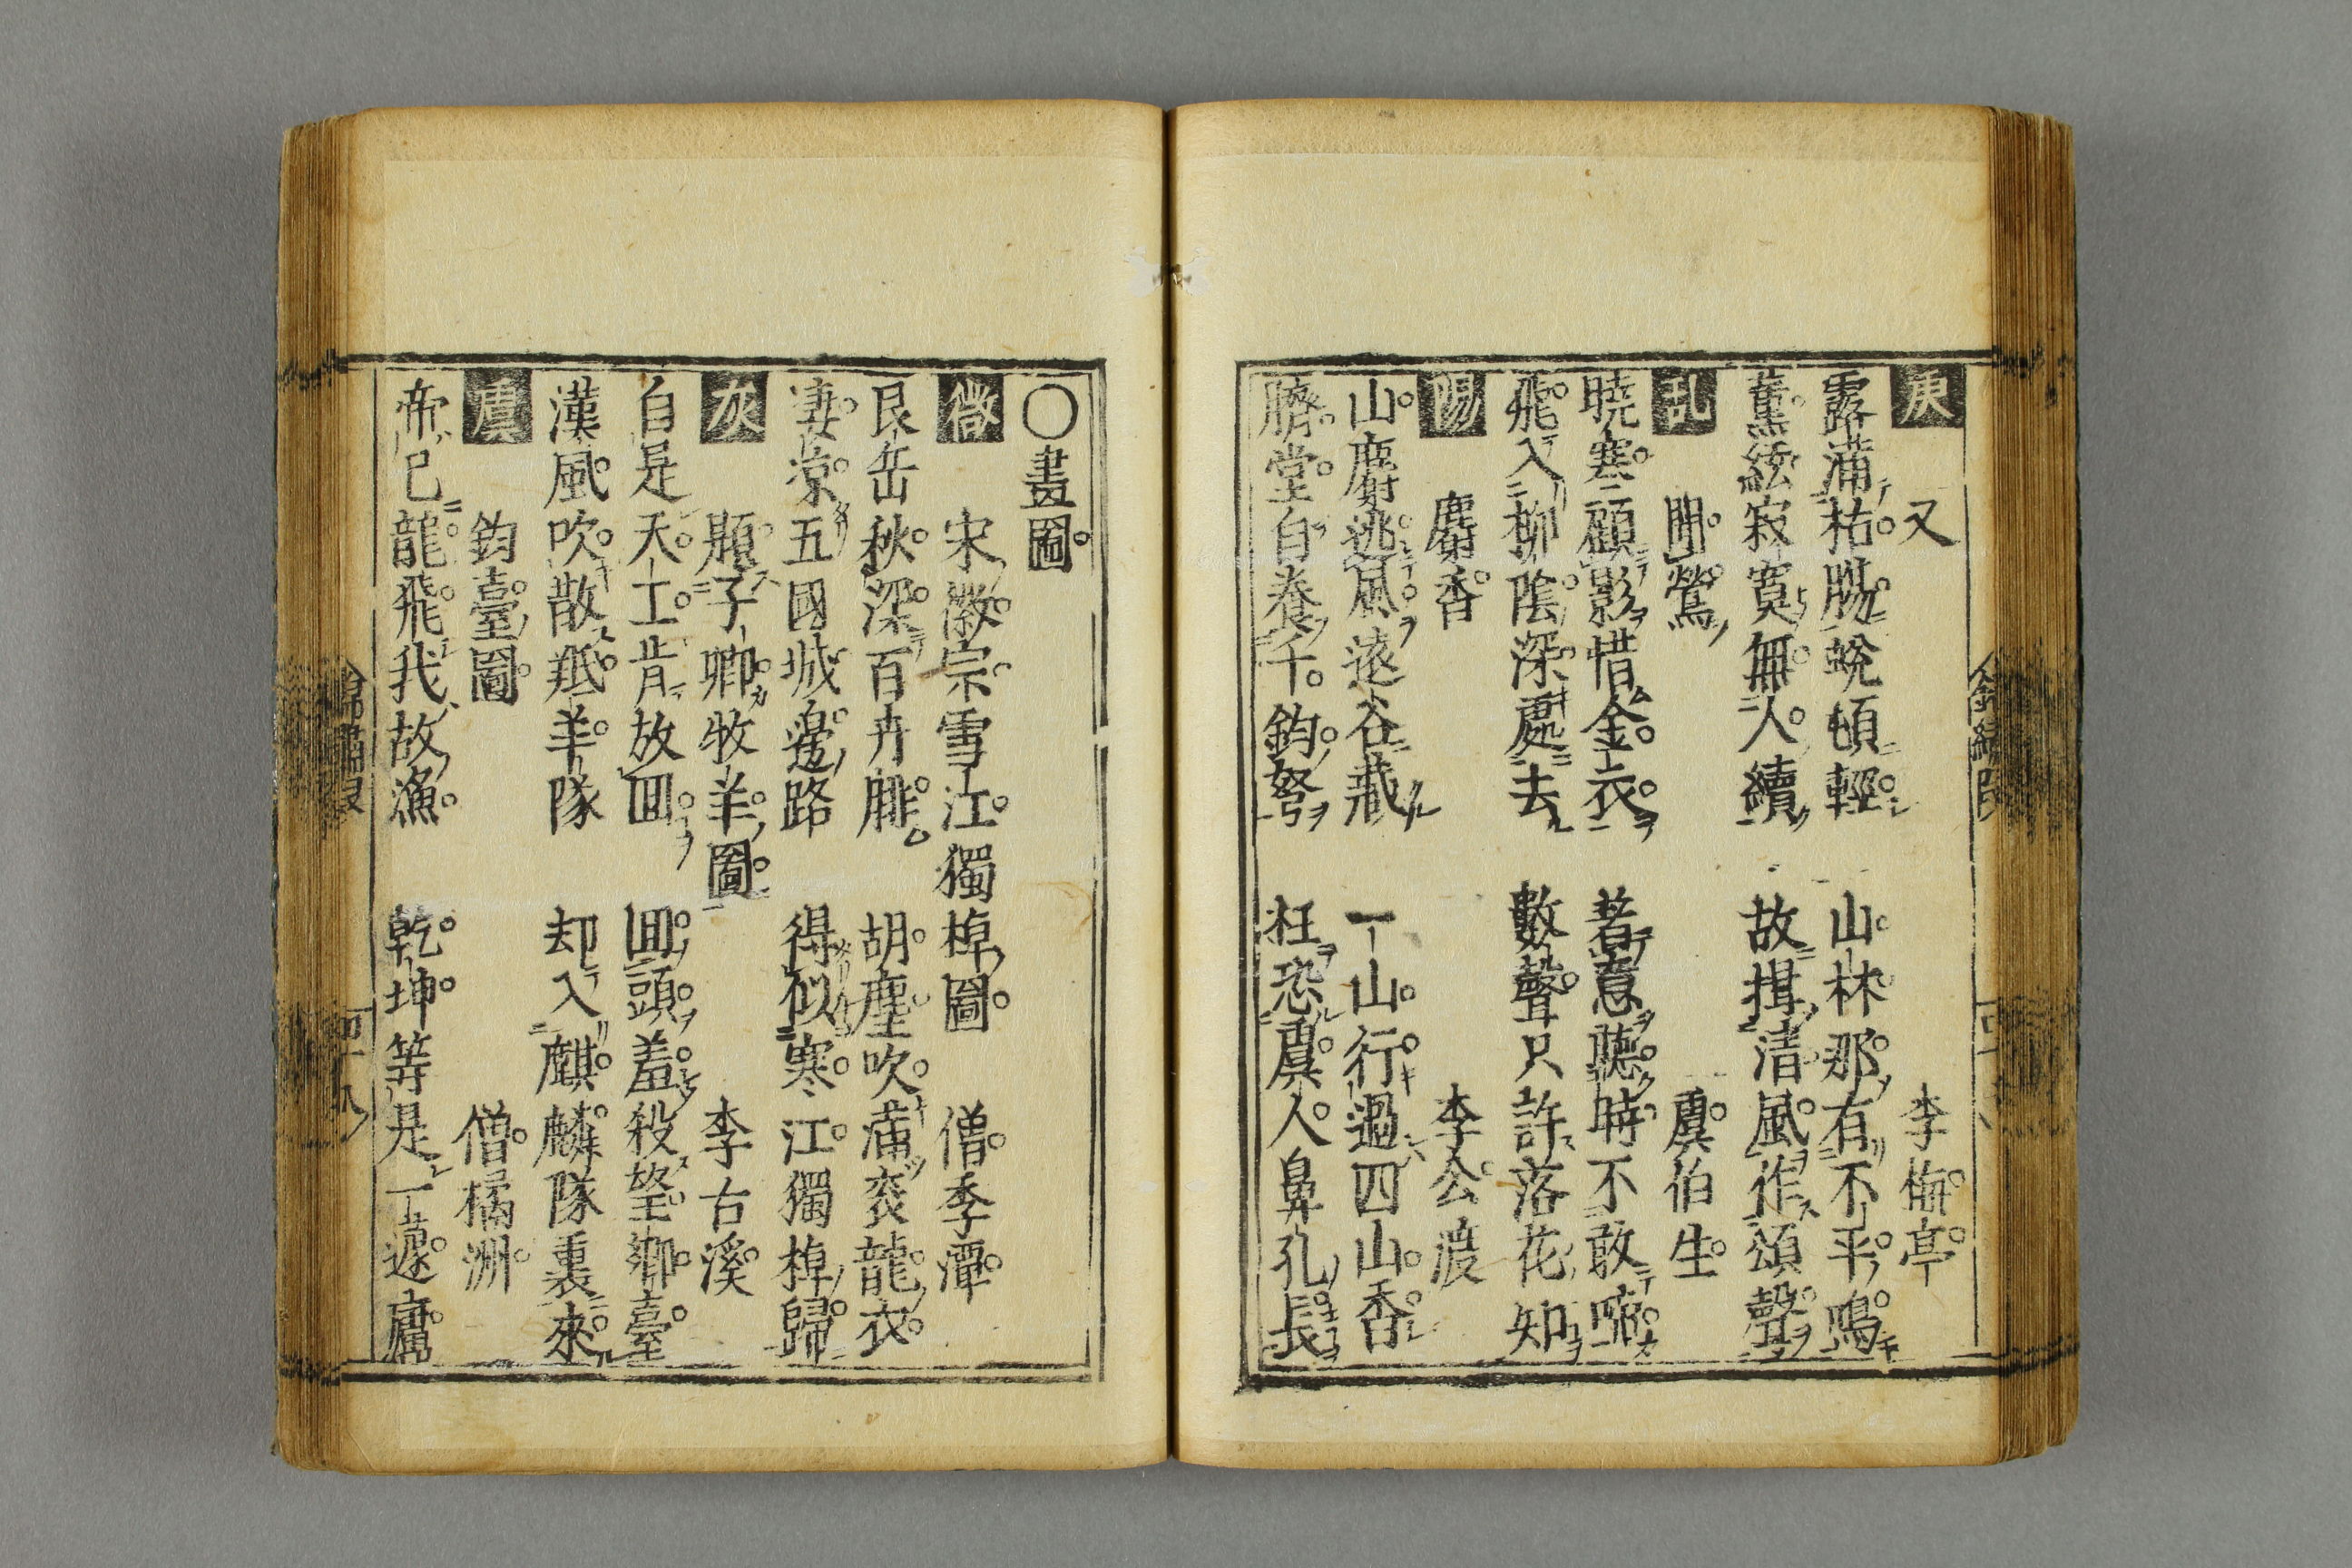 庚　又　李梅亭
露滿枯腸蛻頓輕　山林那有不平鳴
薫絃寂寞無人續　故揖清風作頌聲
乱　聞鶯　虞伯生
暁寒顧影惜金衣　著意聴時不敢啼
飛入柳陰深處去　數聲只許落花知
陽　麝香　李公渡
山麝逃風遠谷藏　一山行過四山香
臍堂自養千鈞弩　枉恐虞人鼻孔長
○畫圖
微　宋徽宗雪江獨棹圖　僧季潭
艮岳秋深百卉腓　胡塵吹滿袞龍衣
凄凉五國城邊路　得似寒江獨棹歸
灰　題子卿牧羊圖　李古溪
自是天工肯放回　回頭羞殺望鄉臺
漢風吹散羝羊隊　却入麒麟隊裏來
虞　釣臺圖　僧橘洲
帝已龍飛我故漁　乾坤等是一蘧廬
錦繡段